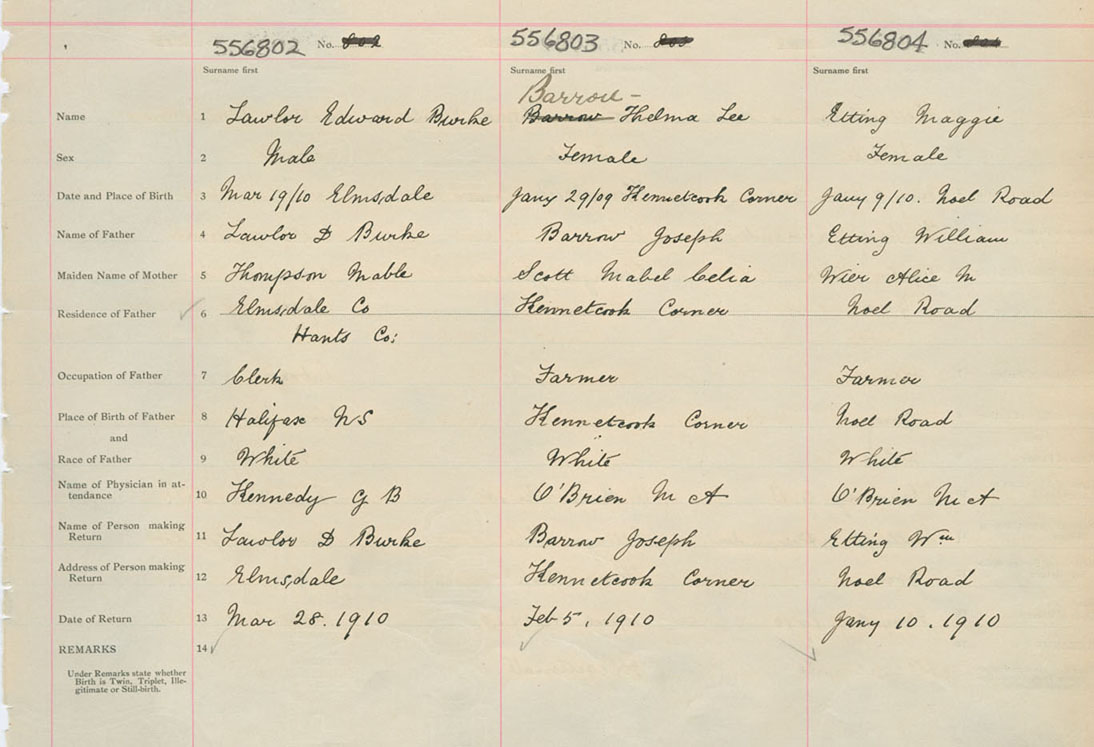 556802 No. 802 556803 No. 803 556804 No. 804
Surname first Surname first Surname first
Barrow -
Name 1 Lawlor Edward Burke Barrow Thelma Lee Etting Maggie
Sex 2 Male Female Female
Date and Place of Birth 3 Mar 19/10 Elmsdale Jany 29/09 Kennetcook Corner Jany 9/10. Noel Road
Name of Father 4 Lawlor D Burke Barrow Joseph Etting William
Maiden Name of Mother 5 Thompson Mable Scott Mabel Celia Wier Alice M
Residence of Father 6 Elmsdale Co Kennetcook Corner Noel Road
Hants Co:
Occupation of Father 7 Clerk Farmer Farmer
Place of Birth of Father 8 Halifax NS Kennetcook Corner Noel Road
and
Race of Father 9 White White White
Name of Physician in at-
tendance 10 Kennedy G B O'Brien M A O'Brien M A
Name of Person making
Return 11 Lawlor D Burke Barrow Joseph Etting Wm
Address of Person making
Return 12 Elmsdale Kennetcook Corner Noel Road
Date of Return 13 Mar 28. 1910 Feb 5, 1910 Jany 10. 1910
REMARKS 14
Under Remarks state whether
Birth is Twin, Triplet, Ille-
gitimate or Still-birth.